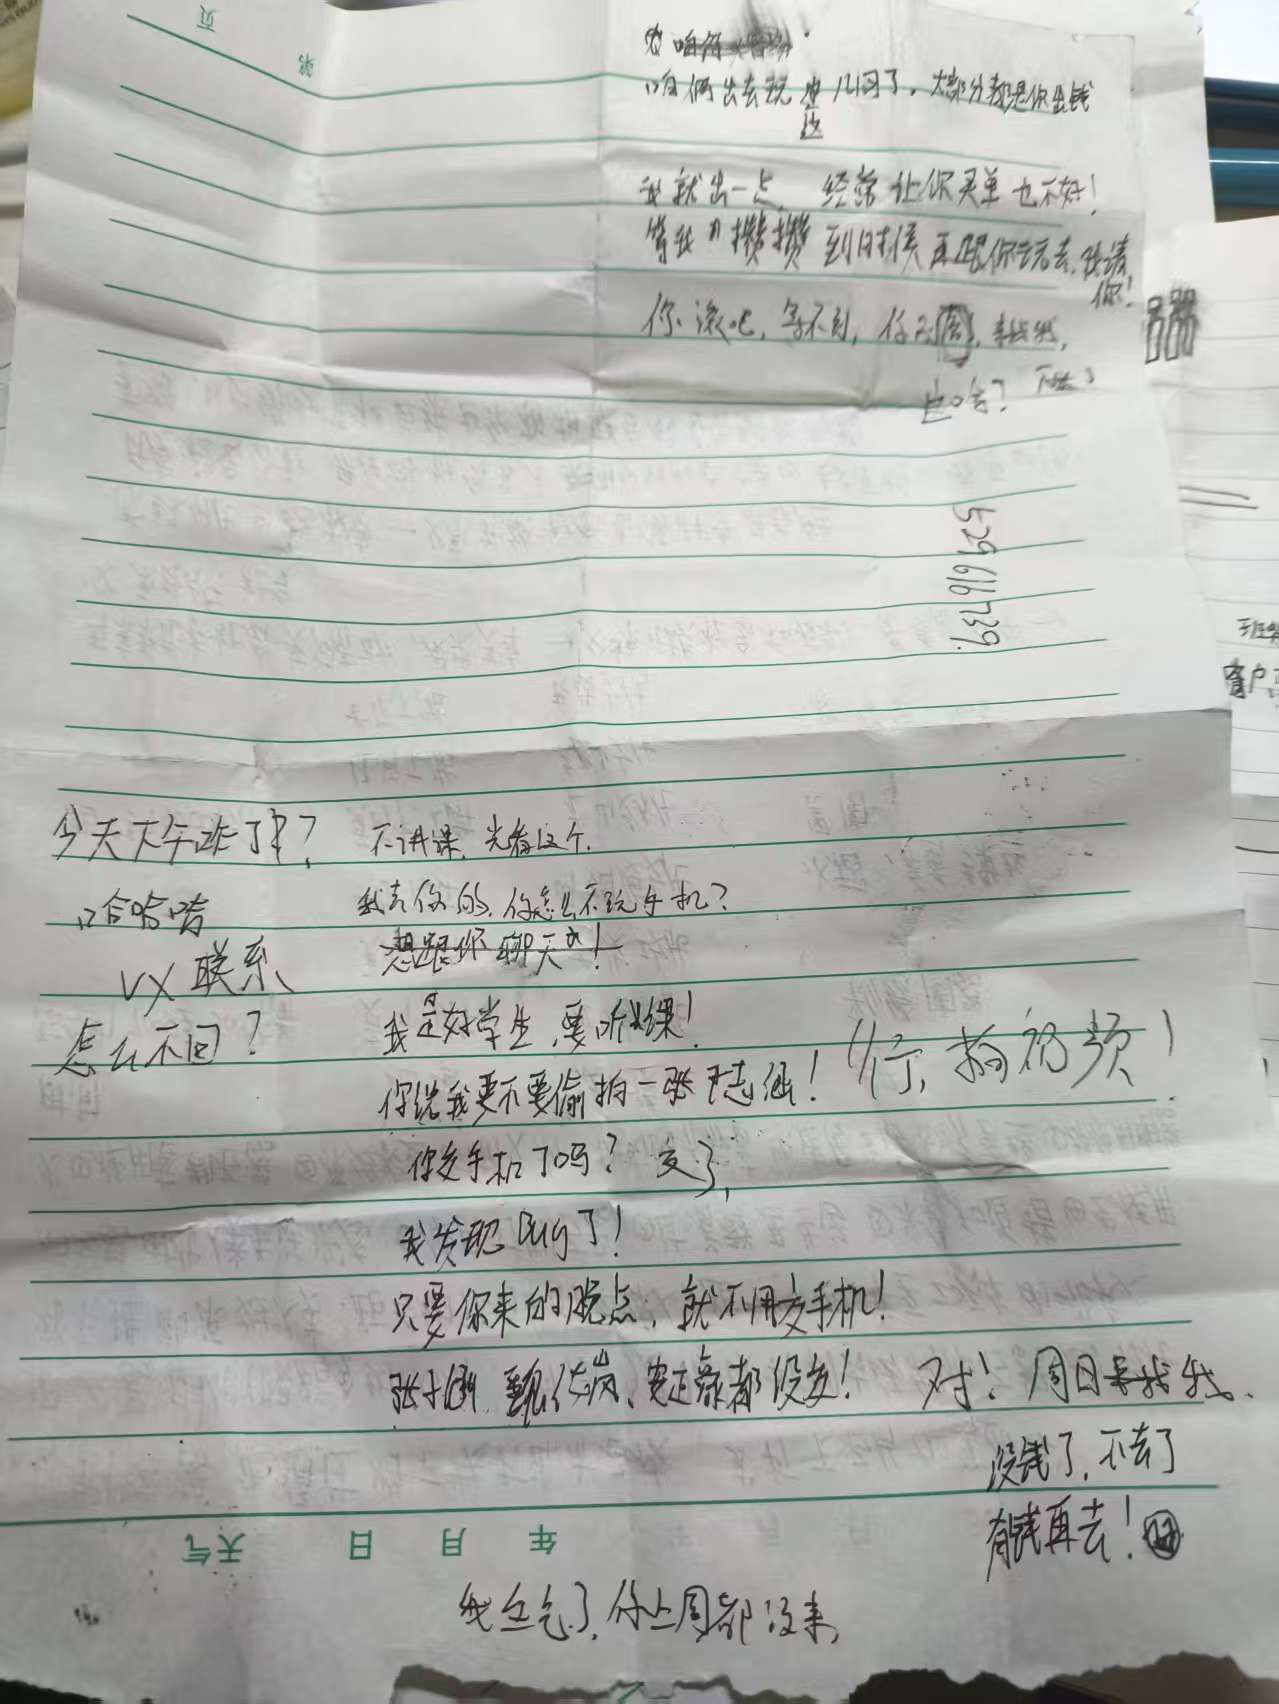 页
第
咱俩出去玩应该几回了，大部分都是你出钱
我就出一点，经常让你买单也不好！
等我攒攒 到时候再跟你去玩去，我请你！
你滚吧，等不到，你不周，来找我，
529616739
今天下午咋了？ 不讲课，光看这个，
哈哈哈 我去你的，你怎么不玩手机？
想跟你聊天！
VX联系
我是好学生，要听课！
怎么不回？
你说我要不要偷拍一张 志涵！ 行，拍视频！
你交手机了吗？ 交了，
我发现bug了！
只要你来的晚点，就不用交手机！
都没交！ 对！周日来找我、
没钱了，不去了
有钱再去！
年 月 日 天气
我生气了，你上周都没来，
班级
客户